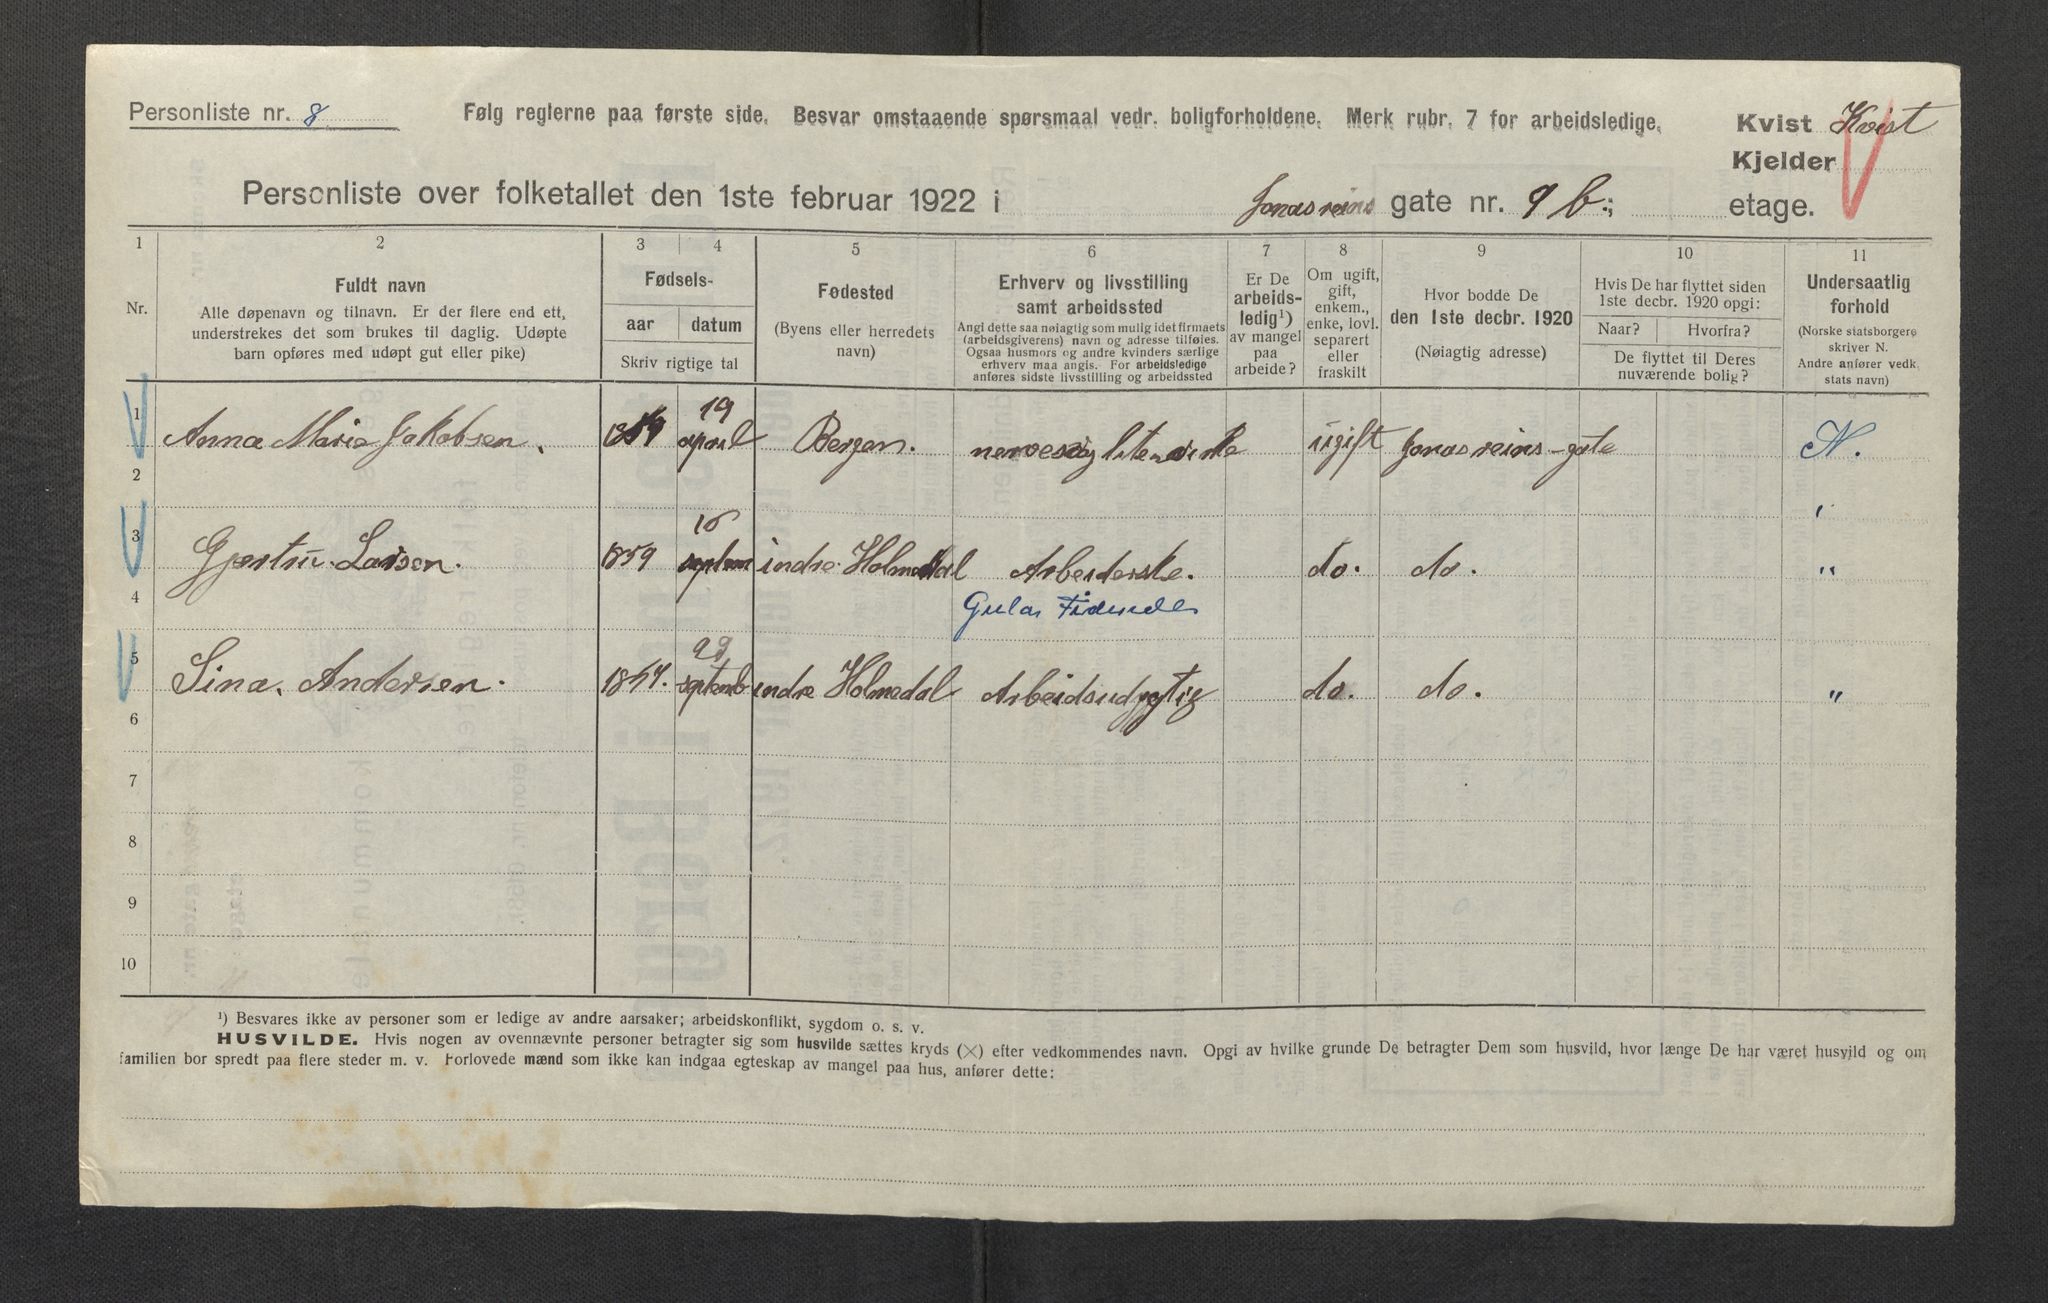 Personliste nr. 8 Følg reglerne paa første side. Besvar omstaaende spørsmaal vedr. boligforholdene. Merk rubr. 7 for arbeidsledige. Kvist Kvist
Kjelder
Personliste over folketallet den 1ste februar 1922 i Jonas reins gate nr. 9 b.; etage.
1 2 3 4 5 6 7 8 9 10 11
Nr.
Fuldt navn
Alle døpenavn og tilnavn. Er der flere end ett,
understrekes det som brukes til daglig. Udøpte
barn opføres med udøpt gut eller pike)
Fødsels-
aar datum
Skriv rigtige tal
Fødested
(Byens eller herredets
navn)
Erhverv og livsstilling
samt arbeidssted
Angi dette saa nøiagtig som mulig idet firmaets
(arbeidsgiverens) navn og adresse tilføies.
Ogsaa husmors og andre kvinders særlige
erhverv maa angis. For arbeidsledige
anføres sidste livsstilling og arbeidssted
Er De
arbeids-
ledig¹)
av mangel
paa
arbeide?
Om ugift,
gift,
enkem.,
enke, lovl.
separert
eller
fraskilt
Hvor bodde De
den 1ste decbr. 1920
(Nøiagtig adresse)
Hvis De har flyttet siden
1ste decbr. 1920 opgi:
Naar? Hvorfra?
De flyttet til Deres
nuværende bolig?
Undersaatlig
forhold
(Norske statsborgere
skriver N.
Andre anfører vedk.
stats navn)
1 Anna Marie Jakobsen. 19 april Bergen. ugift Jonas reins-gate N.
2
3 Larsen. 1859 16 septem indre Holmedal Arbeiderske. do. do. "
4 Gulas Tidende
5 Sina. Andersen. septemb indre Holmedal do. do. "
6
7
8
9
10
¹) Besvares ikke av personer som er ledige av andre aarsaker; arbeidskonflikt, sygdom o. s. v.
HUSVILDE. Hvis nogen av ovennævnte personer betragter sig som husvilde sættes kryds (×) efter vedkommendes navn. Opgi av hvilke grunde De betragter Dem som husvild, hvor længe De har været husvild og om
familien bor spredt paa flere steder m. v. Forlovede mænd som ikke kan indgaa egteskap av mangel paa hus, anfører dette: